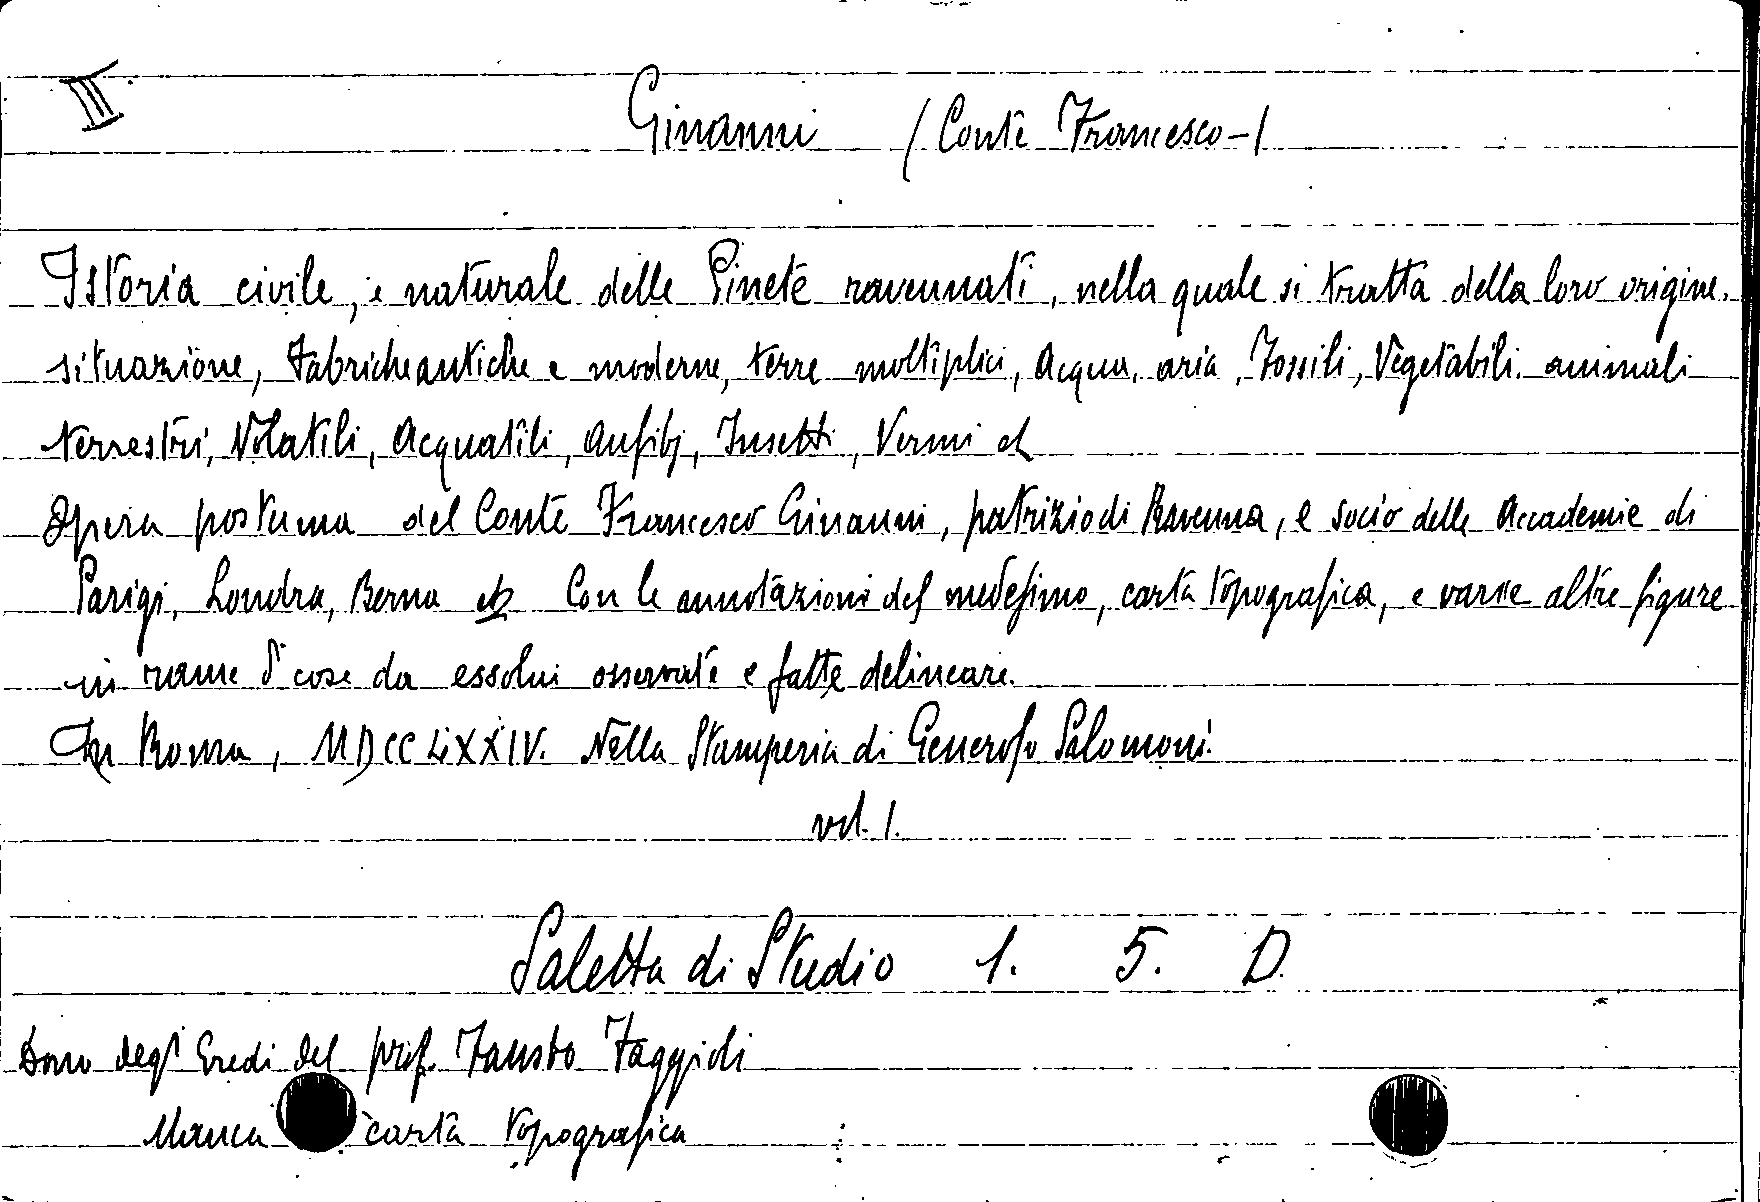 III
Ginanni (Conte Francesco-)
Istoria civile, e naturale delle Pinete ravennati, nella quale si tratta della loro origine.
situazione, Fabriche antiche e moderne, terre moltiplici, Acqua, aria, Fossili, Vegetabili, animali
terrestri, Volatili, Acquatili, Anfibj, Insetti, Vermi et
Opera postuma del Conte Francesco Ginanni, patrizio di Ravenna, e socio delle Accademie di
Parigi, Londra, Berna Con le annotazioni del medesimo, carta topografica, e varie altre figure
in rame di cose da essolui osservate e fatte delineare.
In Roma, MDCCLXXIV. Nella Stamperia di Generoso Salomoni.
vol. 1.
Saletta di Studio 1. 5. D.
Dono degl' Eredi del prof. Fausto Faggioli
Manca carta topografica